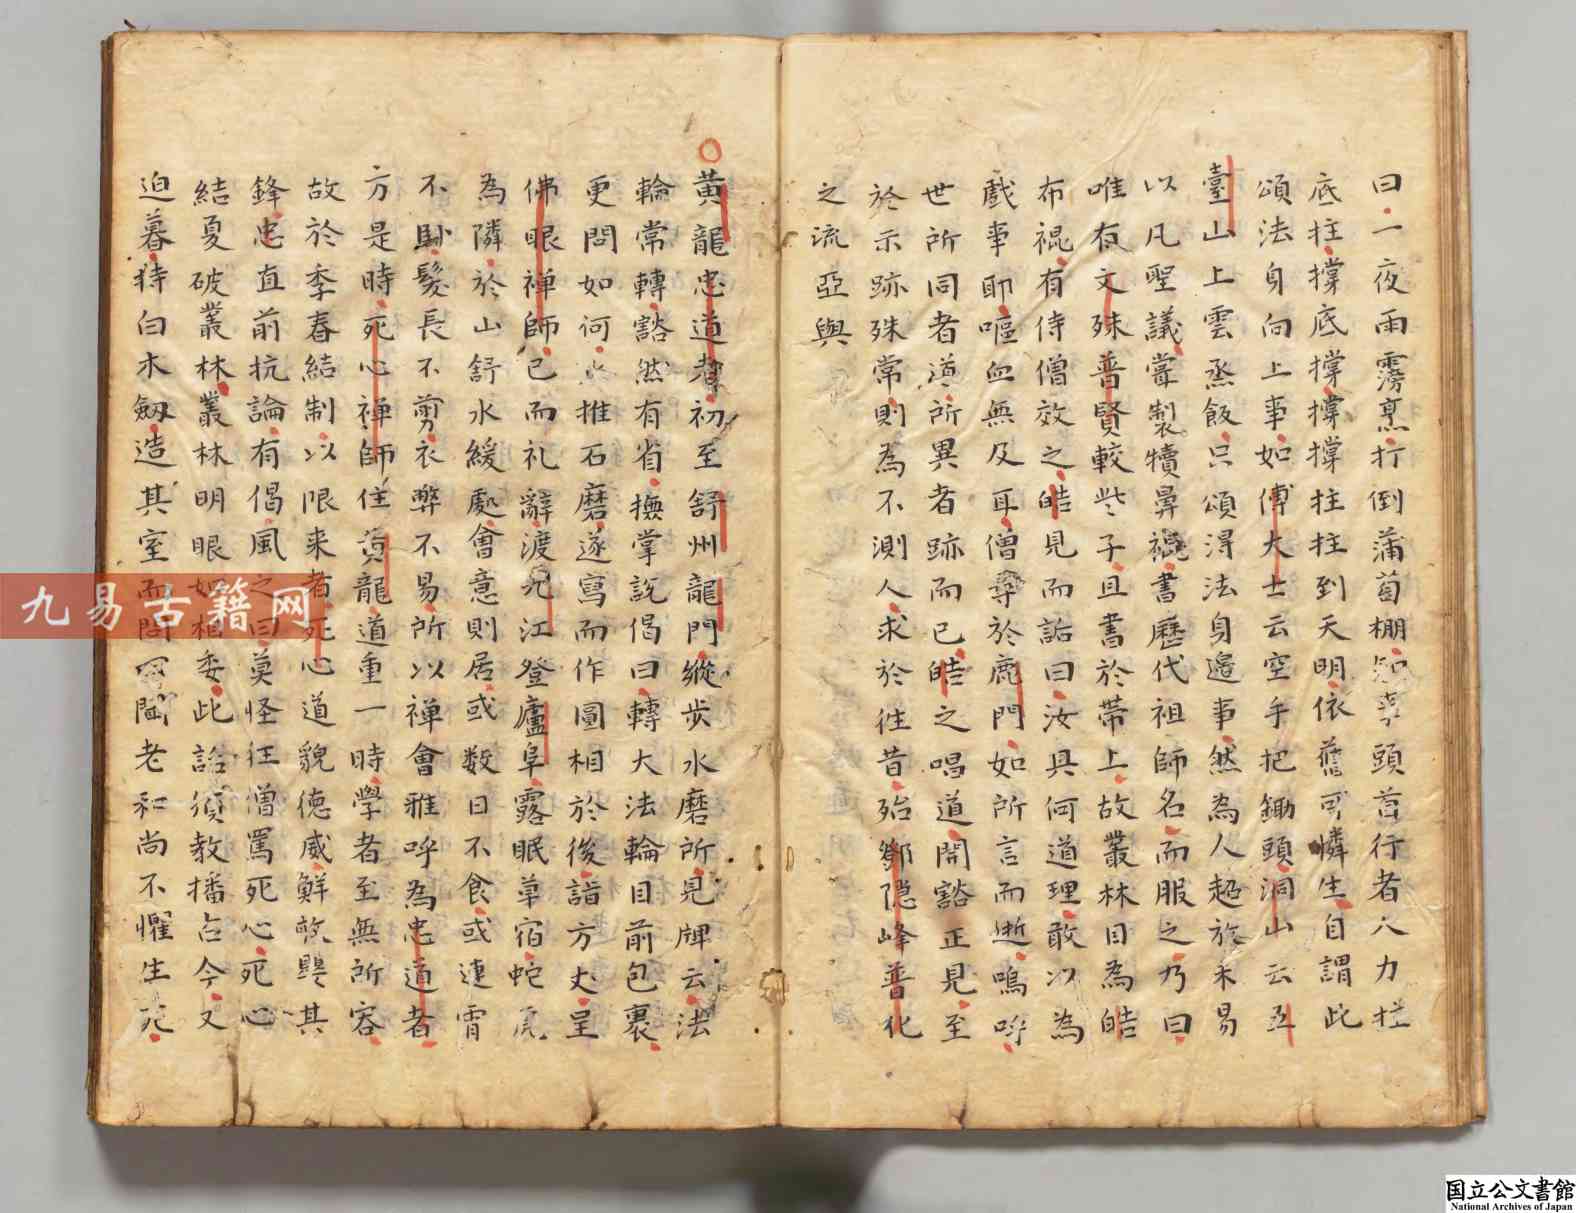 曰一夜雨霶烹打倒蒲萄棚知事頭首行者人力拄
底拄撑底撑撑撑拄拄到天明依舊可憐生自謂此
頌法身向上事如傅大士云空手把鋤頭洞山云五
臺山上雲烝飯只頌淂法身邉事然為人超放未易
以凡聖議嘗製犢鼻裩書歷代祖師名而服之乃曰
唯有文殊普賢較些子且書於帯上故叢林目為皓
布裩有侍僧效之皓見而詬曰汝具何道理敢以為
戲事耶嘔血無及耳僧尋於鹿門如所言而逝嗚呼
世所同者道所異者跡而已皓之唱道開豁正見至
於示跡殊常則為不測人求於徃昔殆鄧隠峰普化
之流亞與
黄龍忠道者初至舒州龍門縱步水磨所見牌云法
輪常轉豁然有省撫掌說偈曰轉大法輪目前包裹
更問如何水推石磨遂寫而作圖相於後詣方丈呈
佛眼禅師已而礼辭渡九江登廬阜露眠草宿蛇虎
為隣於山舒水緩處會意則居或数日不食或連宵
不臥髮長不剪衣弊不易所以禅會雅呼為忠道者
方是時死心禅師住黄龍道重一時學者至無所容
故於季春結制以限来者死心道貌徳威鮮敢嬰其
鋒忠直前抗論有偈風之曰莫怪狂僧罵死心死心
結夏破叢林叢林明眼如相委此話須教播古今又
迫暮持白木劔造其室而問曰聞老和尚不懼生死
九易古籍网
国立公文書館
National Archives of Japan